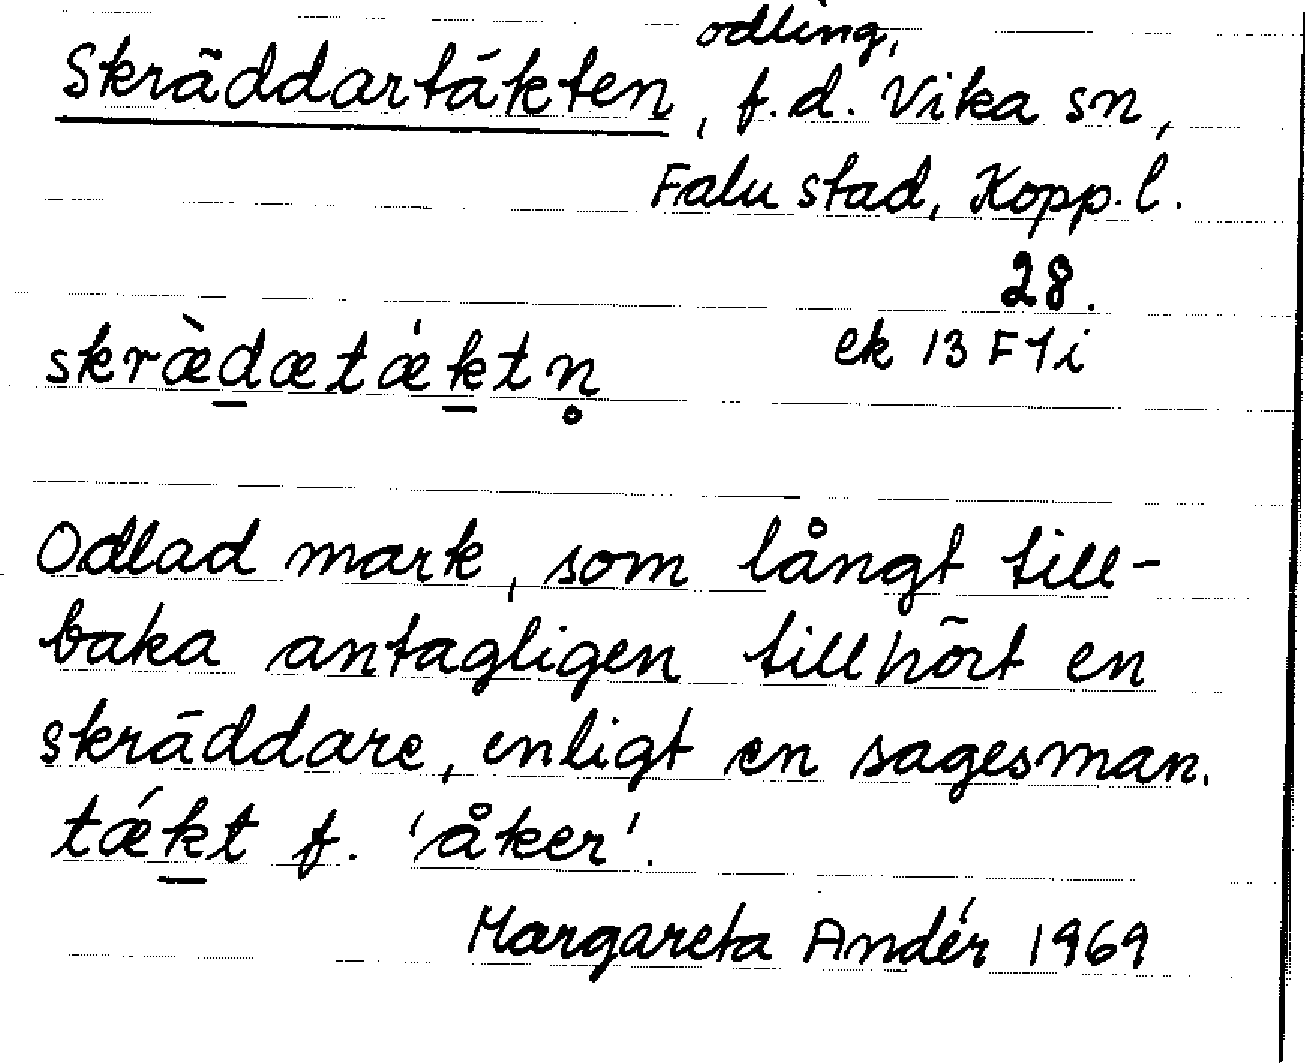 Skräddartäkten, odling, f.d. Vika sn,
Falu stad, Kopp. l.
28.
skræ̀d̲ætǽk̲tn̥
ek 13 F 1 i
Odlad mark, som långt till-
baka antagligen tillhört en
skräddare, enligt en sagesman.
tǽk̲t f. 'åker'.
Margareta Andér 1969